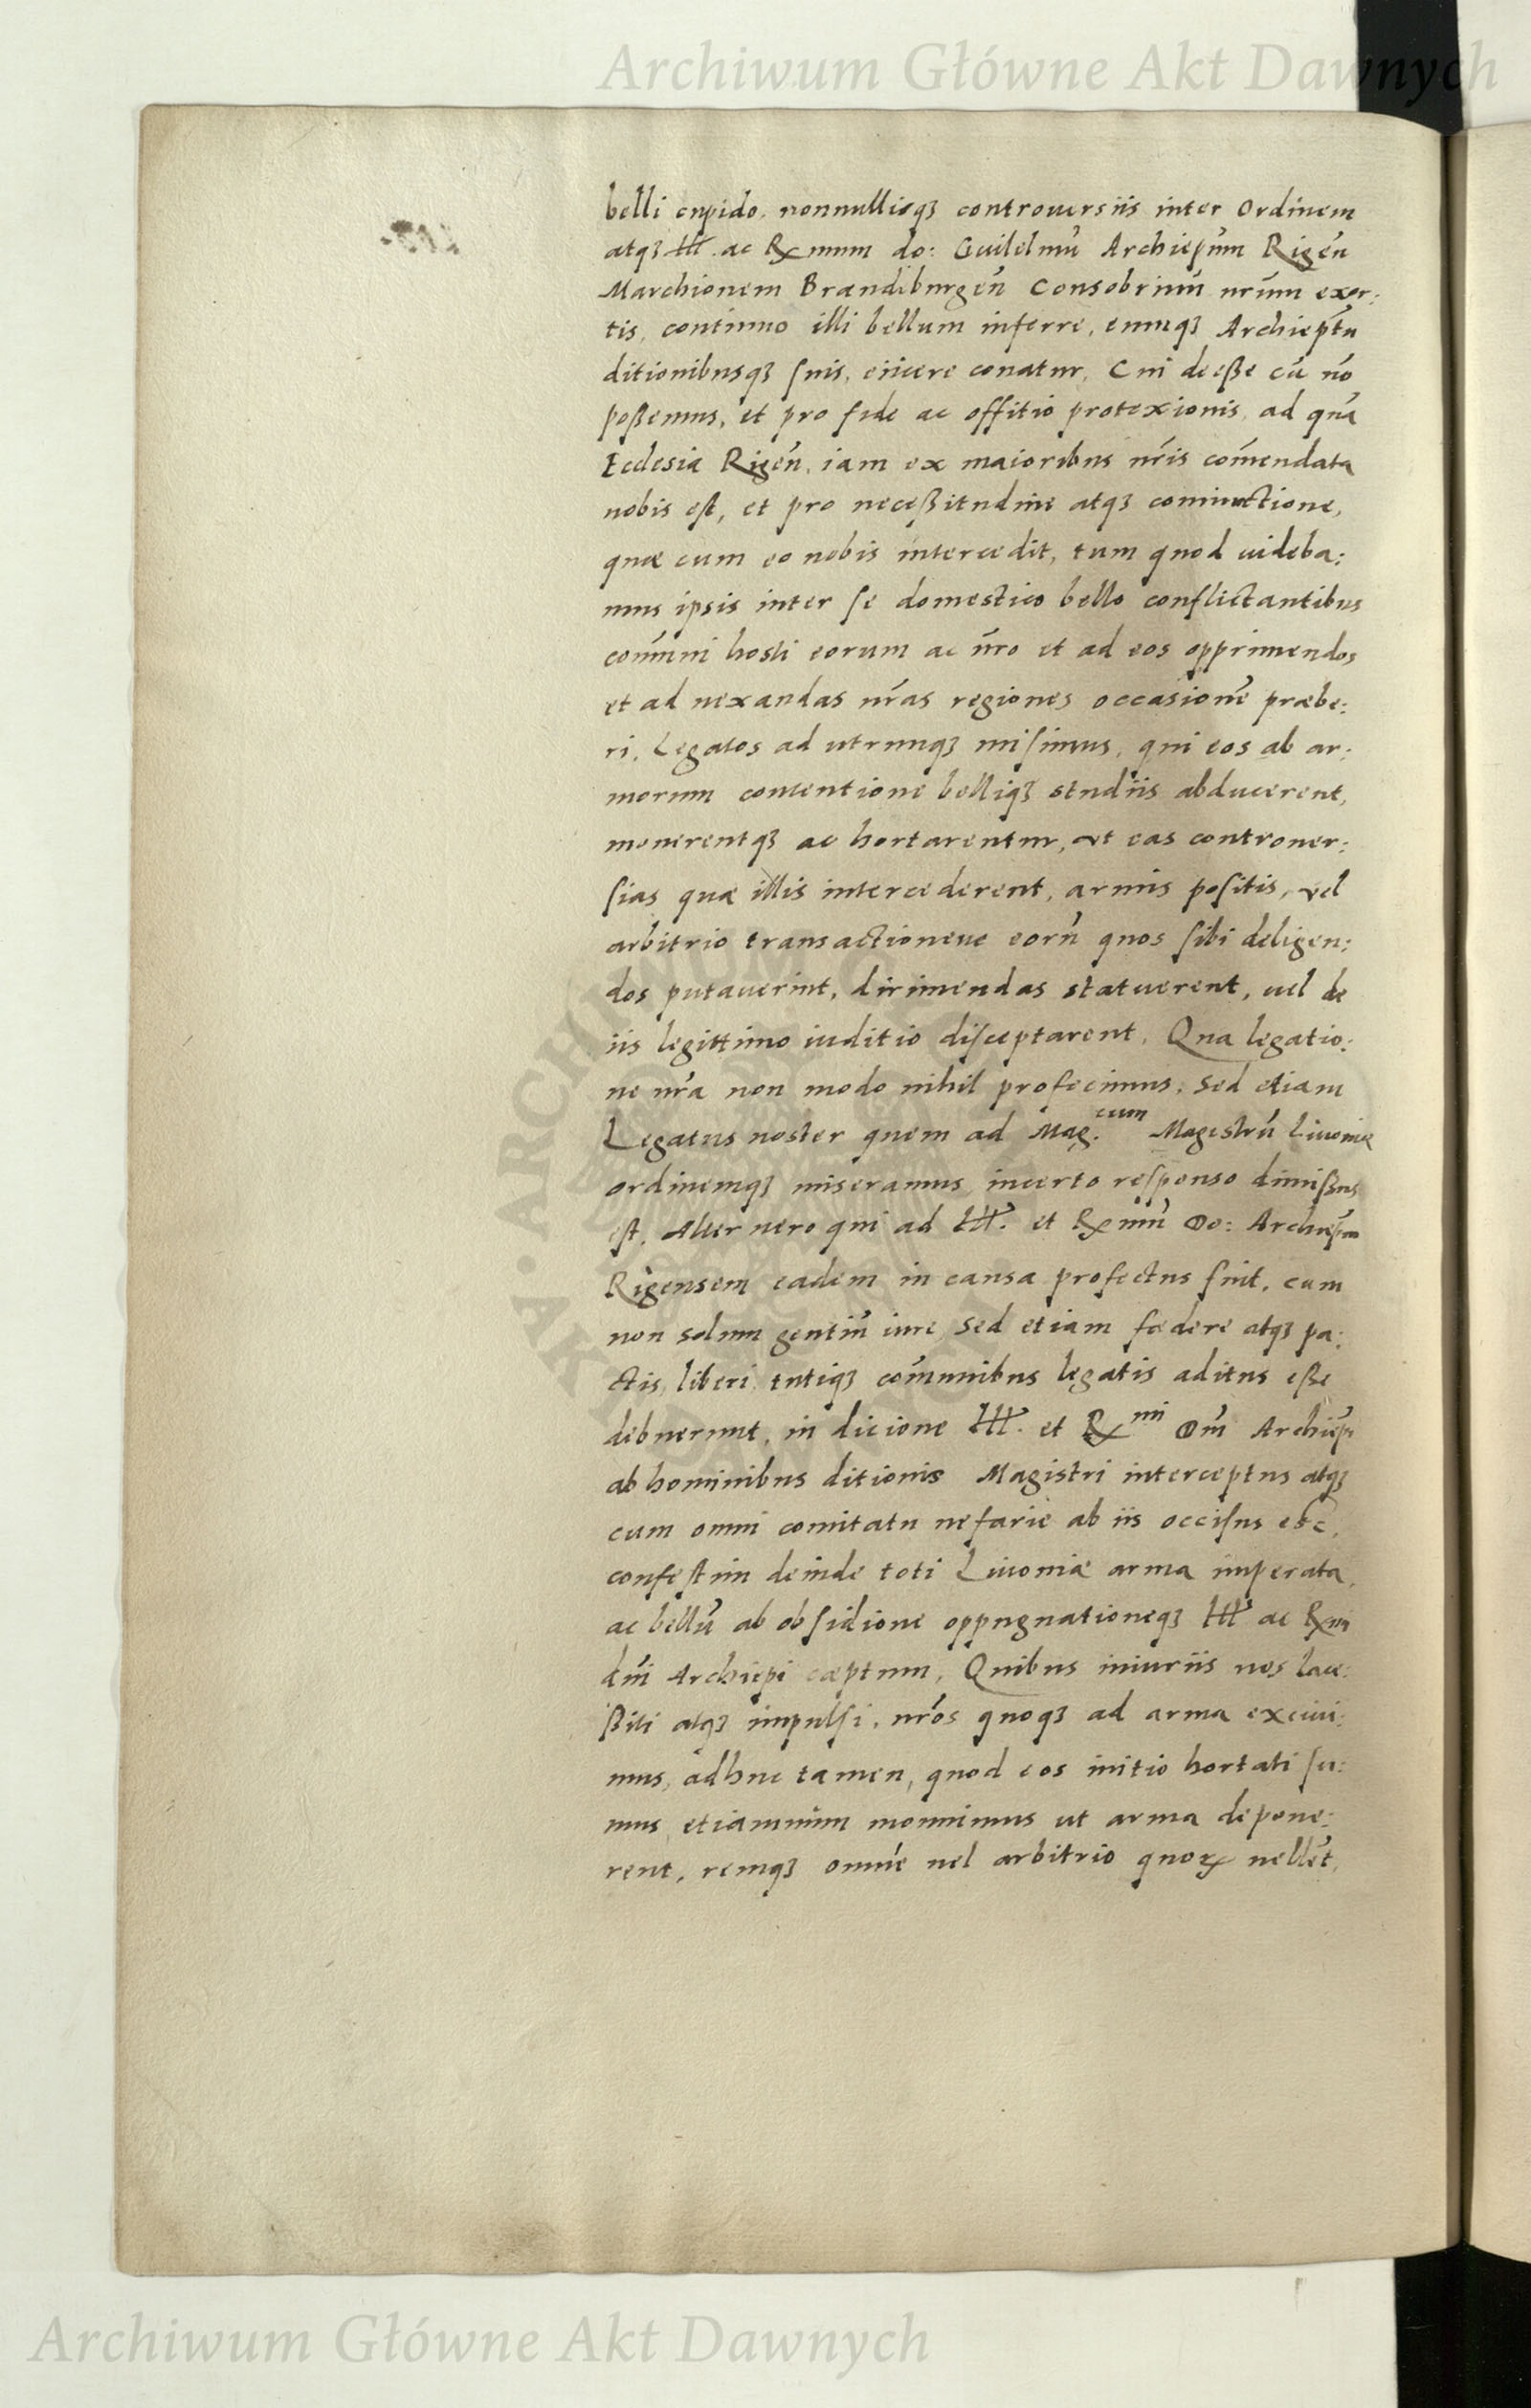 Archiwum Główne Akt Dawnych
belli cupido, nonnullisqꝫ controuersiis inter Ordinem
atqꝫ Ill. ac Rxmum do: Guilelmū Archiepūm Rigēn
Marchionem Brandiburgēn Consobrinū nrūm exor:
tis, continuo illi bellum inferre, eumqꝫ Archiep̄tu
ditionibusqꝫ suis, eiicere conatur, Cui deesse cū nō
possemus, et pro fide ac offitio protexionis, ad quā
Ecclesia Rigēn, iam ex maioribus nr̄is com̄endata
nobis est, et pro necessitudine atqꝫ coniunctione,
quæ cum eo nobis intercedit, tum quod uideba:
mus ipsis inter se domestico bello conflictantibus
com̄uni hosti eorum ac nr̄o et ad eos opprimendos
et ad uexandas nr̄as regiones occasionē præbe:
ri, Legatos ad utrunqꝫ misimus, qui eos ab ar:
morum contentione belliqꝫ studiis abducerent,
monerentqꝫ ac hortarentur, vt eas controuer:
sias quæ illis intercederent, armis positis, vel
arbitrio transactioneue eorū quos sibi deligen:
dos putauerint, dirimendas statuerent, uel de
iis legittimo iuditio disceptarent. Qua legatio:
ne nr̄a non modo nihil profecimus, sed etiam
Legatus noster quem ad Mag.cum Magistrū Liuoniæ
ordinemqꝫ miseramus incerto responso dimissus
est. Alter uero qui ad Ill. et Rxmū Do: Archiepūm
Rigensem eadem in causa profectus fuit, cum
non solum gentiū iure sed etiam fœdere atqꝫ pa:
ctis, liberi tutiqꝫ com̄unibus legatis aditus esse
debuerunt, in dicione Ill. et Rxmi Dn̄i Archiep̄i
ab hominibus ditionis Magistri interceptus atqꝫ
cum omni comitatu nefarie ab iis occisus est,
confestim deinde toti Liuoniæ arma imperata,
ac bellū ab obsidione oppugnationeqꝫ Ill ac Rxmi
dn̄i Archiepi cæptum, Quibus iniuriis nos lace:
ssiti atqꝫ impulsi, nr̄os quoqꝫ ad arma exciui:
mus, adhuc tamen, quod eos initio hortati su:
mus, etiamnum monuimus ut arma depone:
rent, remqꝫ omnē uel arbitrio quoꝝ uellēt,
Archiwum Główne Akt Dawnych